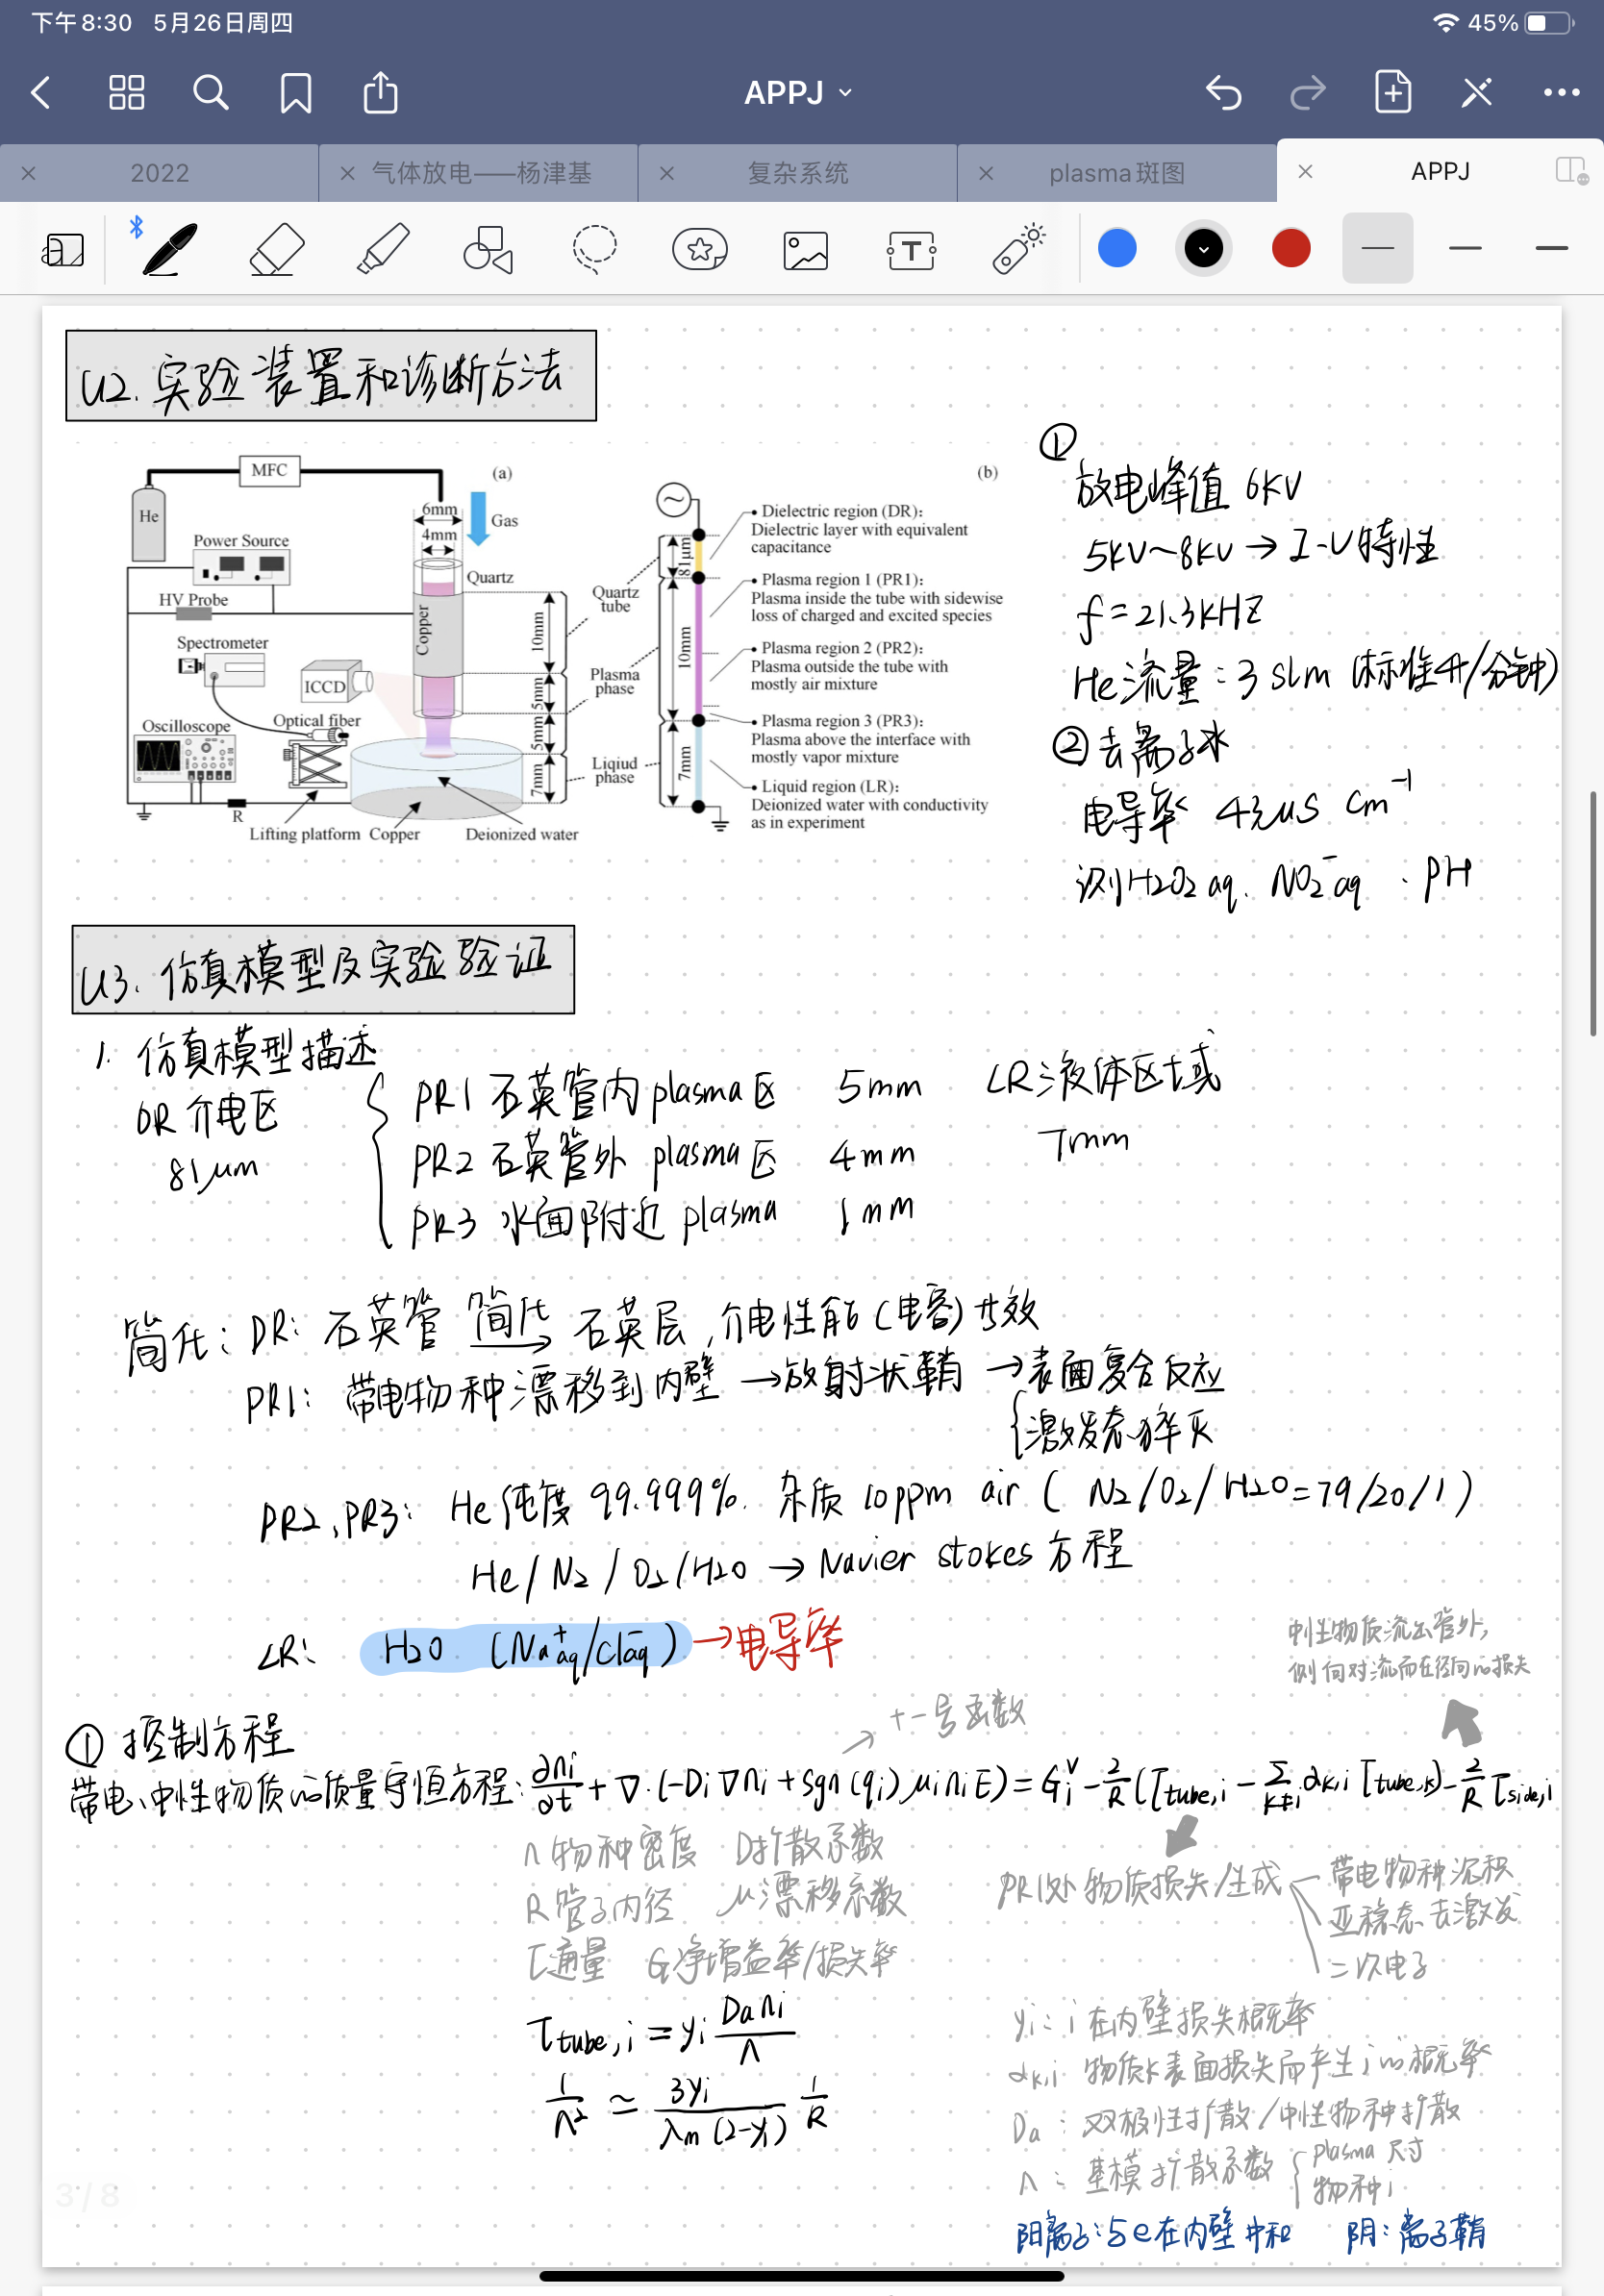 下午8:30 5月26日周四
45%
APPJ
2022
气体放电——杨津基
复杂系统
plasma斑图
APPJ
U2. 实验装置和诊断方法
MFC
(a)
He
6mm
4mm
Gas
Power Source
Quartz
HV Probe
Copper
10mm
Spectrometer
ICCD
5mm
Optical fiber
Oscilloscope
5mm
7mm
R
Lifting platform
Copper
Deionized water
(b)
Quartz tube
Plasma phase
Liqiud phase
81μm
10mm
7mm
• Dielectric region (DR):
Dielectric layer with equivalent
capacitance
• Plasma region 1 (PR1):
Plasma inside the tube with sidewise
loss of charged and excited species
• Plasma region 2 (PR2):
Plasma outside the tube with
mostly air mixture
• Plasma region 3 (PR3):
Plasma above the interface with
mostly vapor mixture
• Liquid region (LR):
Deionized water with conductivity
as in experiment
①
放电峰值 6KV
5KV~8KV → I-U特性
f = 21.3KHZ
He流量: 3 slm (标准升/分钟)
②去离子水
电导率 43μS cm⁻¹
测H2O2 aq、NO2⁻aq、PH
U3. 仿真模型及实验验证
1. 仿真模型描述
DR介电区
81μm
PR1 石英管内plasma区 5mm
PR2 石英管外 plasma区 4mm
PR3 水面附近 plasma 1mm
LR液体区域
7mm
简化: DR: 石英管 简化→ 石英层,介电性能(电容)等效
PR1: 带电物种漂移到内壁 →放射状鞘 →表面复合反应
激发态猝灭
PR2、PR3: He纯度 99.999%. 杂质 10ppm air ( N2/O2/H2O=79/20/1 )
He/N2/O2/H2O → Navier stokes 方程
LR: H2O (Na⁺aq/Cl⁻aq) →电导率
中性物质流出管外,
侧向对流而在径向的损失
① 控制方程
+-号函数
带电、中性物质的质量守恒方程: ∂ni/∂t + ∇·(-Di∇ni + sgn(qi)μiniE) = Giᵛ - 2/R(Γtube,i - Σk≠i αk,i Γtube,k) - 2/R Γside,i
n物种密度 D扩散系数
R管子内径 μ漂移系数
Γ通量 G净增益率/损失率
PR1处物质损失/生成
带电物种沉积
亚稳态去激发
二次电子
Γtube,i = γi Dani/Λ
1/Λ² ≃ 3γi/λm(2-γi) 1/R
γi: i在内壁损失概率
αk,i 物质k表面损失而产生i的概率
Da: 双极性扩散/中性物种扩散
Λ: 基模扩散系数 plasma 尺寸
物种i
阳离子:与e在内壁中和 阴:离子鞘
3/8